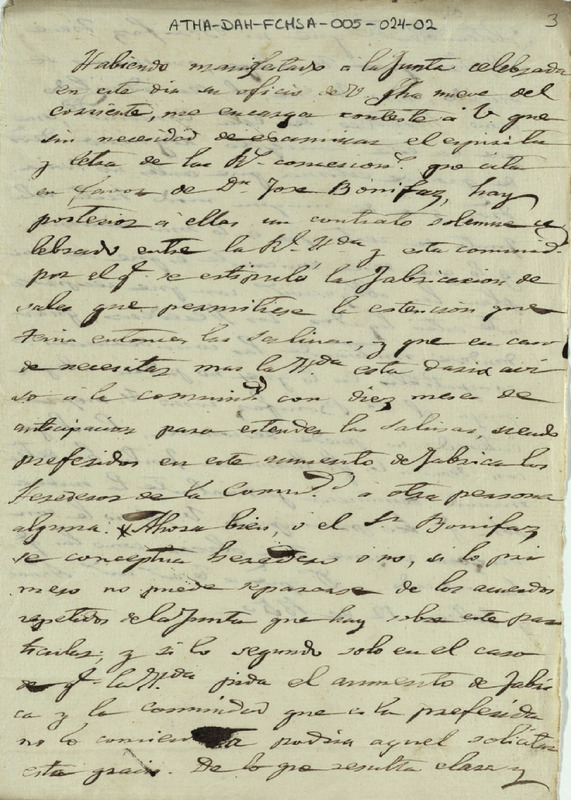 ATHA-DAH-FCHSA-005-024-02
3
Habiendo manifestado a la Junta celebrada
en este dia su oficio de V. fha nueve del
corriente, me encarga conteste a V que
sin necesidad de examinar el espiritu
y letra de las Rs. concesions. que cita
en favor de Dn. Jose Bonifaz, hay
posterior a ellas un contrato solemne ce
lebrado entre la Rl. Hda y esta comunidd.
por el q se estipuló la fabricacion de
sales que permitiese la estencion que
tenia entonces las Salinas, y que en caso
de necesitar mas la Hda esta daria avi
so a la comunidd con diez meses de
anticipacion para estender las Salinas, siendo
preferidos en este aumento de fabrica los
herederos de la Comundd. a otra persona
alguna. Ahora bien, o el Sr Bonifaz
se conceptua heredero o no, si lo pri
mero no puede separarse de los acuerdos
repetidos de la Junta que hay sobre este par
ticular; y si lo segundo solo en el caso
de q. la Hda pida el aumento de fabri
ca y la comunidad que es la preferida
no lo podria aquel solicitar
esta gracia. De lo que resulta clara y